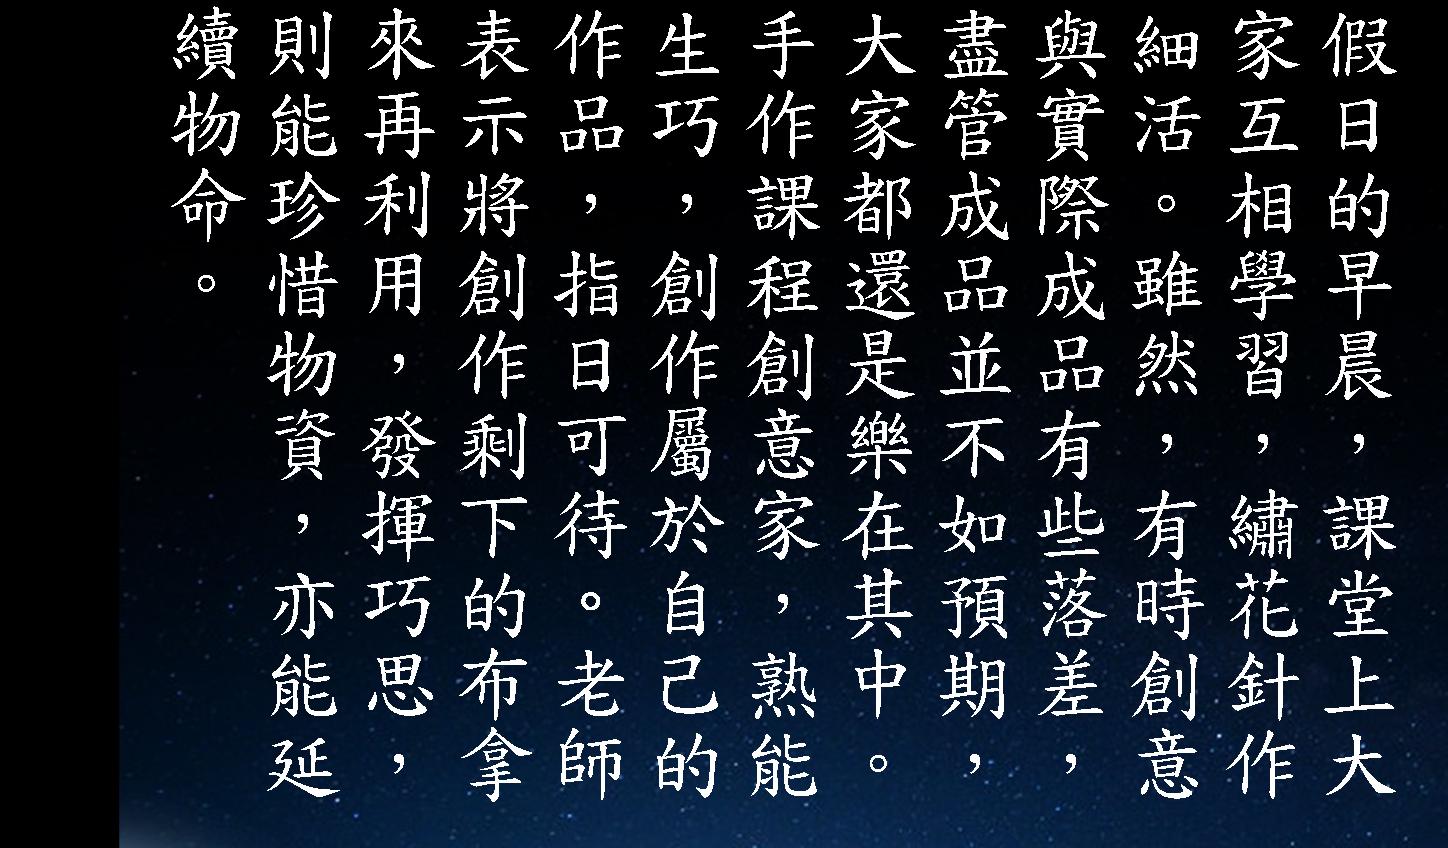 假日的早晨，課堂上大
家互相學習，繡花針作
細活。雖然，有時創意
與實際成品有些落差，
盡管成品並不如預期，
大家都還是樂在其中。
手作課程創意家，熟能
生巧，創作屬於自己的
作品，指日可待。老師
表示將創作剩下的布拿
來再利用，發揮巧思，
則能珍惜物資，亦能延
續物命。